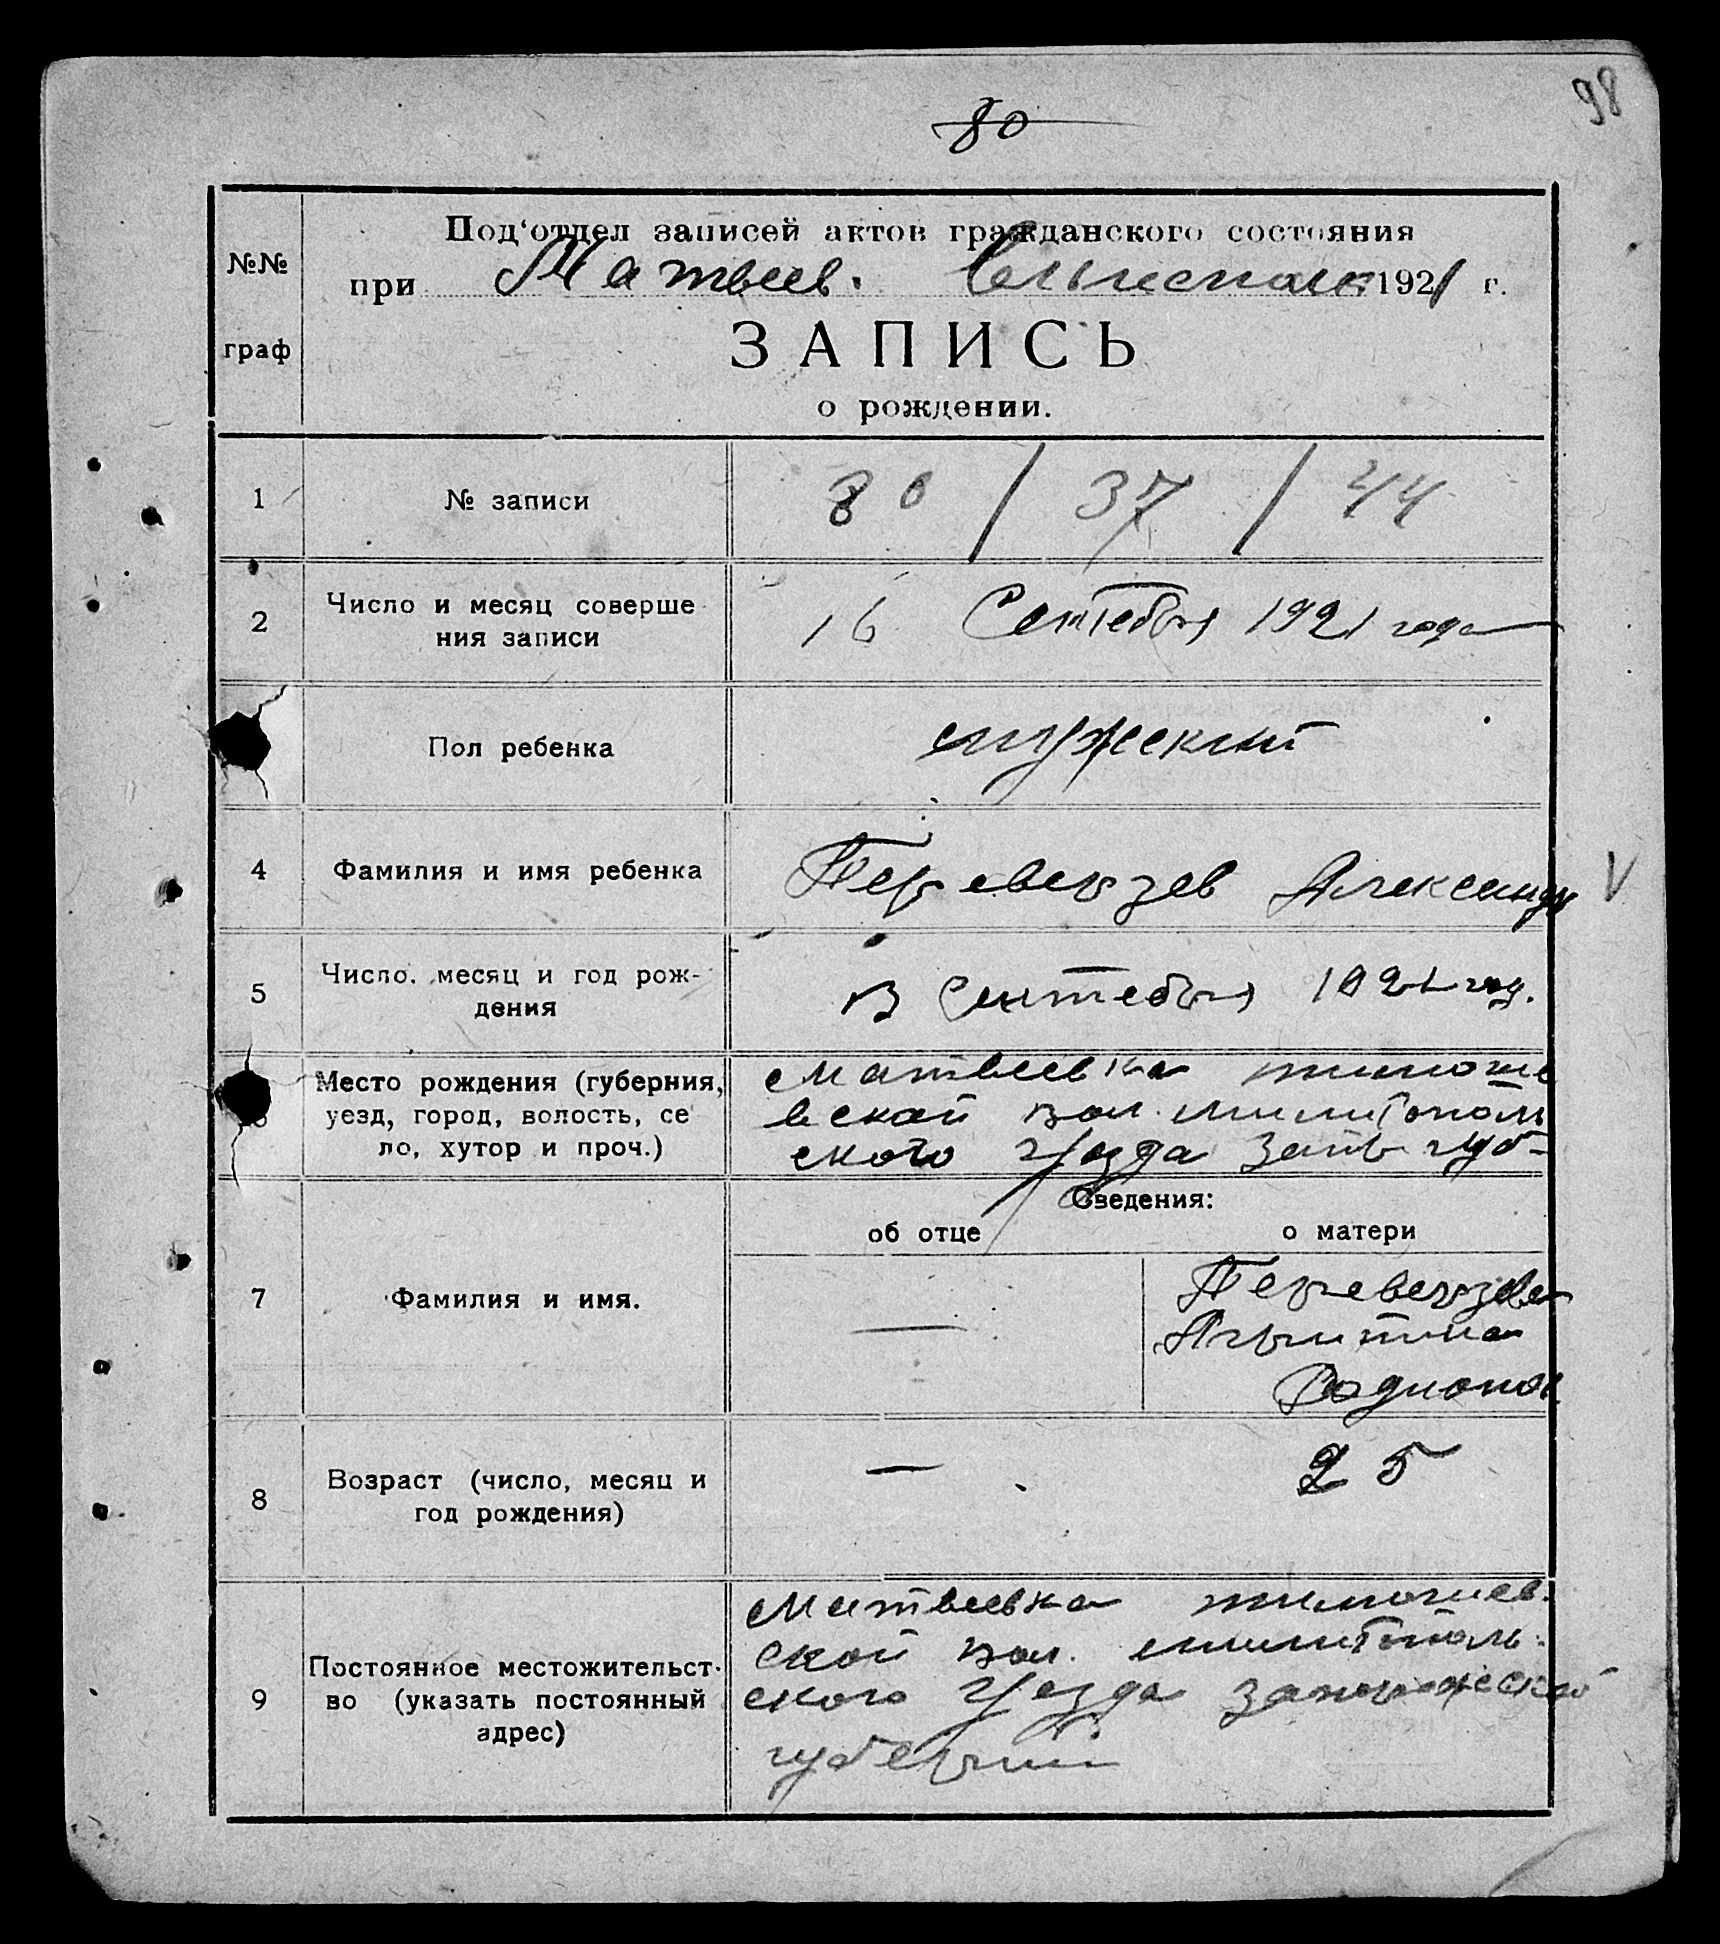 98
80
№№
граф
Под'отдел записей актов гражданского состояния
при Матвеев. 1921 г.
ЗАПИСЬ
о рождении.
1 № записи 80 / 37 / 44
2 Число и месяц соверше
ния записи 16 Сентебря 1921 года
Пол ребенка мужеский
4 Фамилия и имя ребенка Переверзев Александр V
5 Число. месяц и год рож-
дения 13 Сентебря 1921 год.
Место рождения (губерния, Матвеевка тимоше
6 уезд, город, волость, се вской вол. милитополь
ло, хутор и проч.) ского уезда Запор губ-
Сведения:
об отце о матери
7 Фамилия и имя. — Переверзева
Родионов
8 Возраст (число, месяц и
год рождения) — 25
Матвеевка тимошев.
9 Постоянное местожительст-
во (указать постоянный
адрес) ской вол. милитополь-
ского уезда запорожеской
губернии